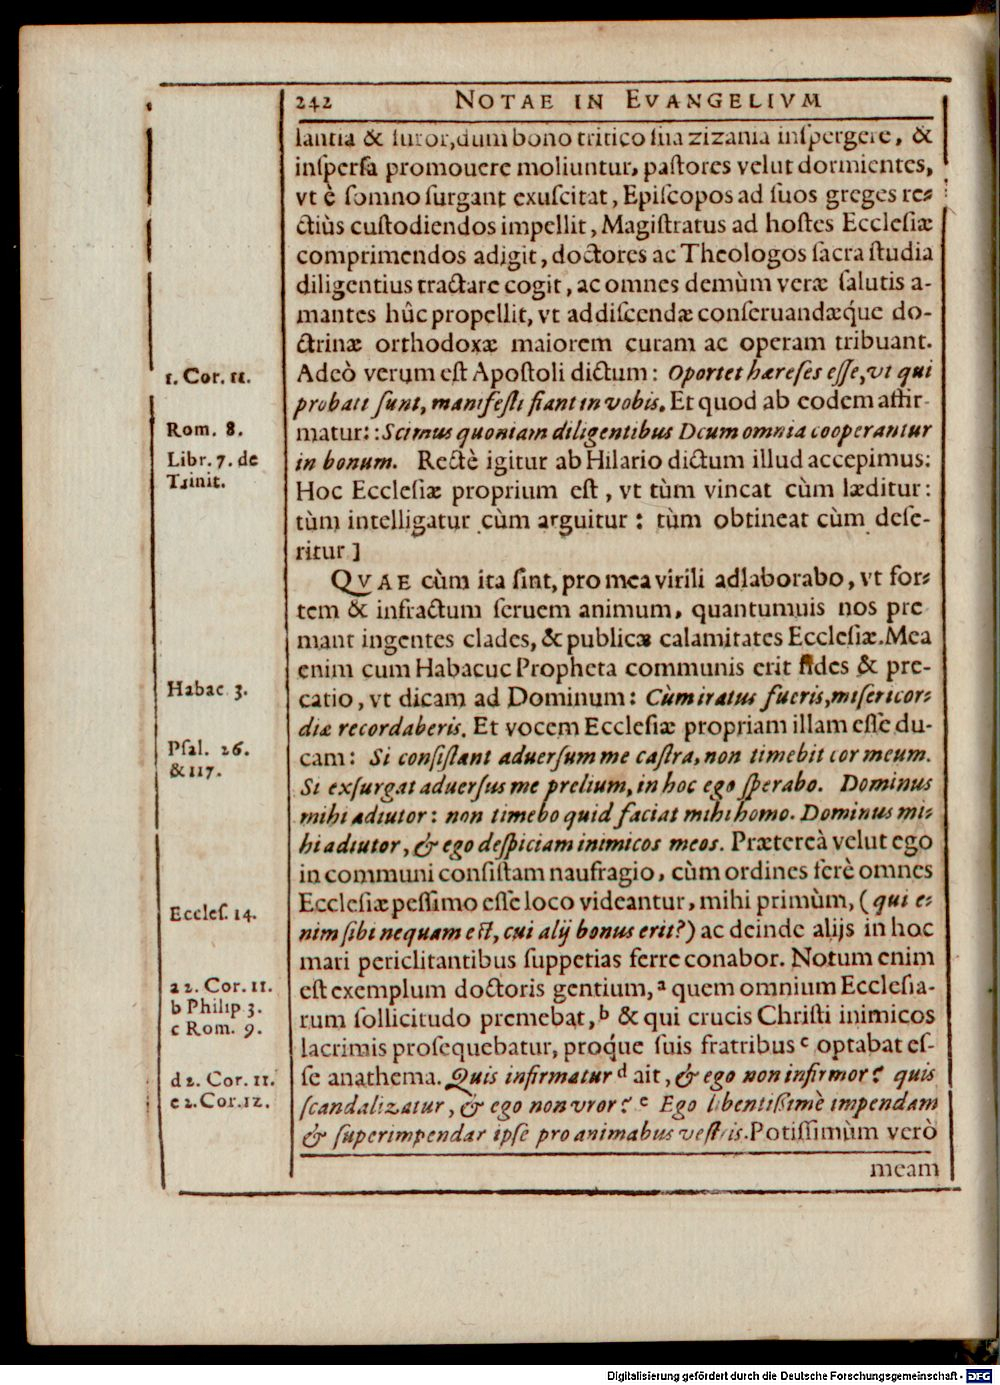 242 NOTAE IN EVANGELIVM
lantia & furor, dum bono tritico sua zizania inspergere, &
inspersa promouere moliuntur, pastores velut dormientes,
vt è somno surgant exuscitat, Episcopos ad suos greges re-
ctiùs custodiendos impellit, Magistratus ad hostes Ecclesiæ
comprimendos adigit, doctores ac Theologos sacra studia
diligentius tractare cogit, ac omnes demùm veræ salutis a-
mantes hûc propellit, vt addiscendæ conseruandæq́ue do-
ctrinæ orthodoxæ maiorem curam ac operam tribuant.
1. Cor. 11. Adeò verum est Apostoli dictum: Oportet hæreses esse, vt qui
probati sunt, manifesti fiant in vobis. Et quod ab eodem affir-
Rom. 8. matur: : Scimus quoniam diligentibus Deum omnia cooperantur
Libr. 7. de in bonum. Rectè igitur ab Hilario dictum illud accepimus:
Trinit. Hoc Ecclesiæ proprium est, vt tùm vincat cùm læditur:
tùm intelligatur cùm arguitur: tùm obtineat cùm dese-
ritur]
QVAE cùm ita sint, pro mea virili adlaborabo, vt for-
tem & infractum seruem animum, quantumuis nos pre
mant ingentes clades, & publicæ calamitates Ecclesiæ. Mea
enim cum Habacuc Propheta communis erit fides & pre-
Habac 3. catio, vt dicam ad Dominum: Cùm iratus fueris, misericor-
diæ recordaberis. Et vocem Ecclesiæ propriam illam esse du-
Psal. 26. cam: Si consistant aduersum me castra, non timebit cor meum.
& 117. Si exsurgat aduersus me prelium, in hoc ego sperabo. Dominus
mihi adiutor: non timebo quid faciat mihi homo. Dominus mi-
hi adiutor, & ego despiciam inimicos meos. Prætereà velut ego
in communi consistam naufragio, cùm ordines ferè omnes
Eccles. 14. Ecclesiæ pessimo esse loco videantur, mihi primùm, (qui e-
nim sibi nequam est, cui alij bonus erit?) ac deinde alijs in hoc
mari periclitantibus suppetias ferre conabor. Notum enim
a 2. Cor. 11. est exemplum doctoris gentium, a quem omnium Ecclesia-
b Philip 3. rum sollicitudo premebat, b & qui crucis Christi inimicos
c Rom. 9. lacrimis prosequebatur, proq́ue suis fratribus c optabat es-
d 2. Cor. 11. se anathema. Quis infirmatur d ait, & ego non infirmor? quis
e 2. Cor. 12. scandalizatur, & ego non vror? e Ego libentissimè impendam
& superimpendar ipse pro animabus vestris. Potissimùm verò
meam
Digitalisierung gefördert durch die Deutsche Forschungsgemeinschaft - DFG